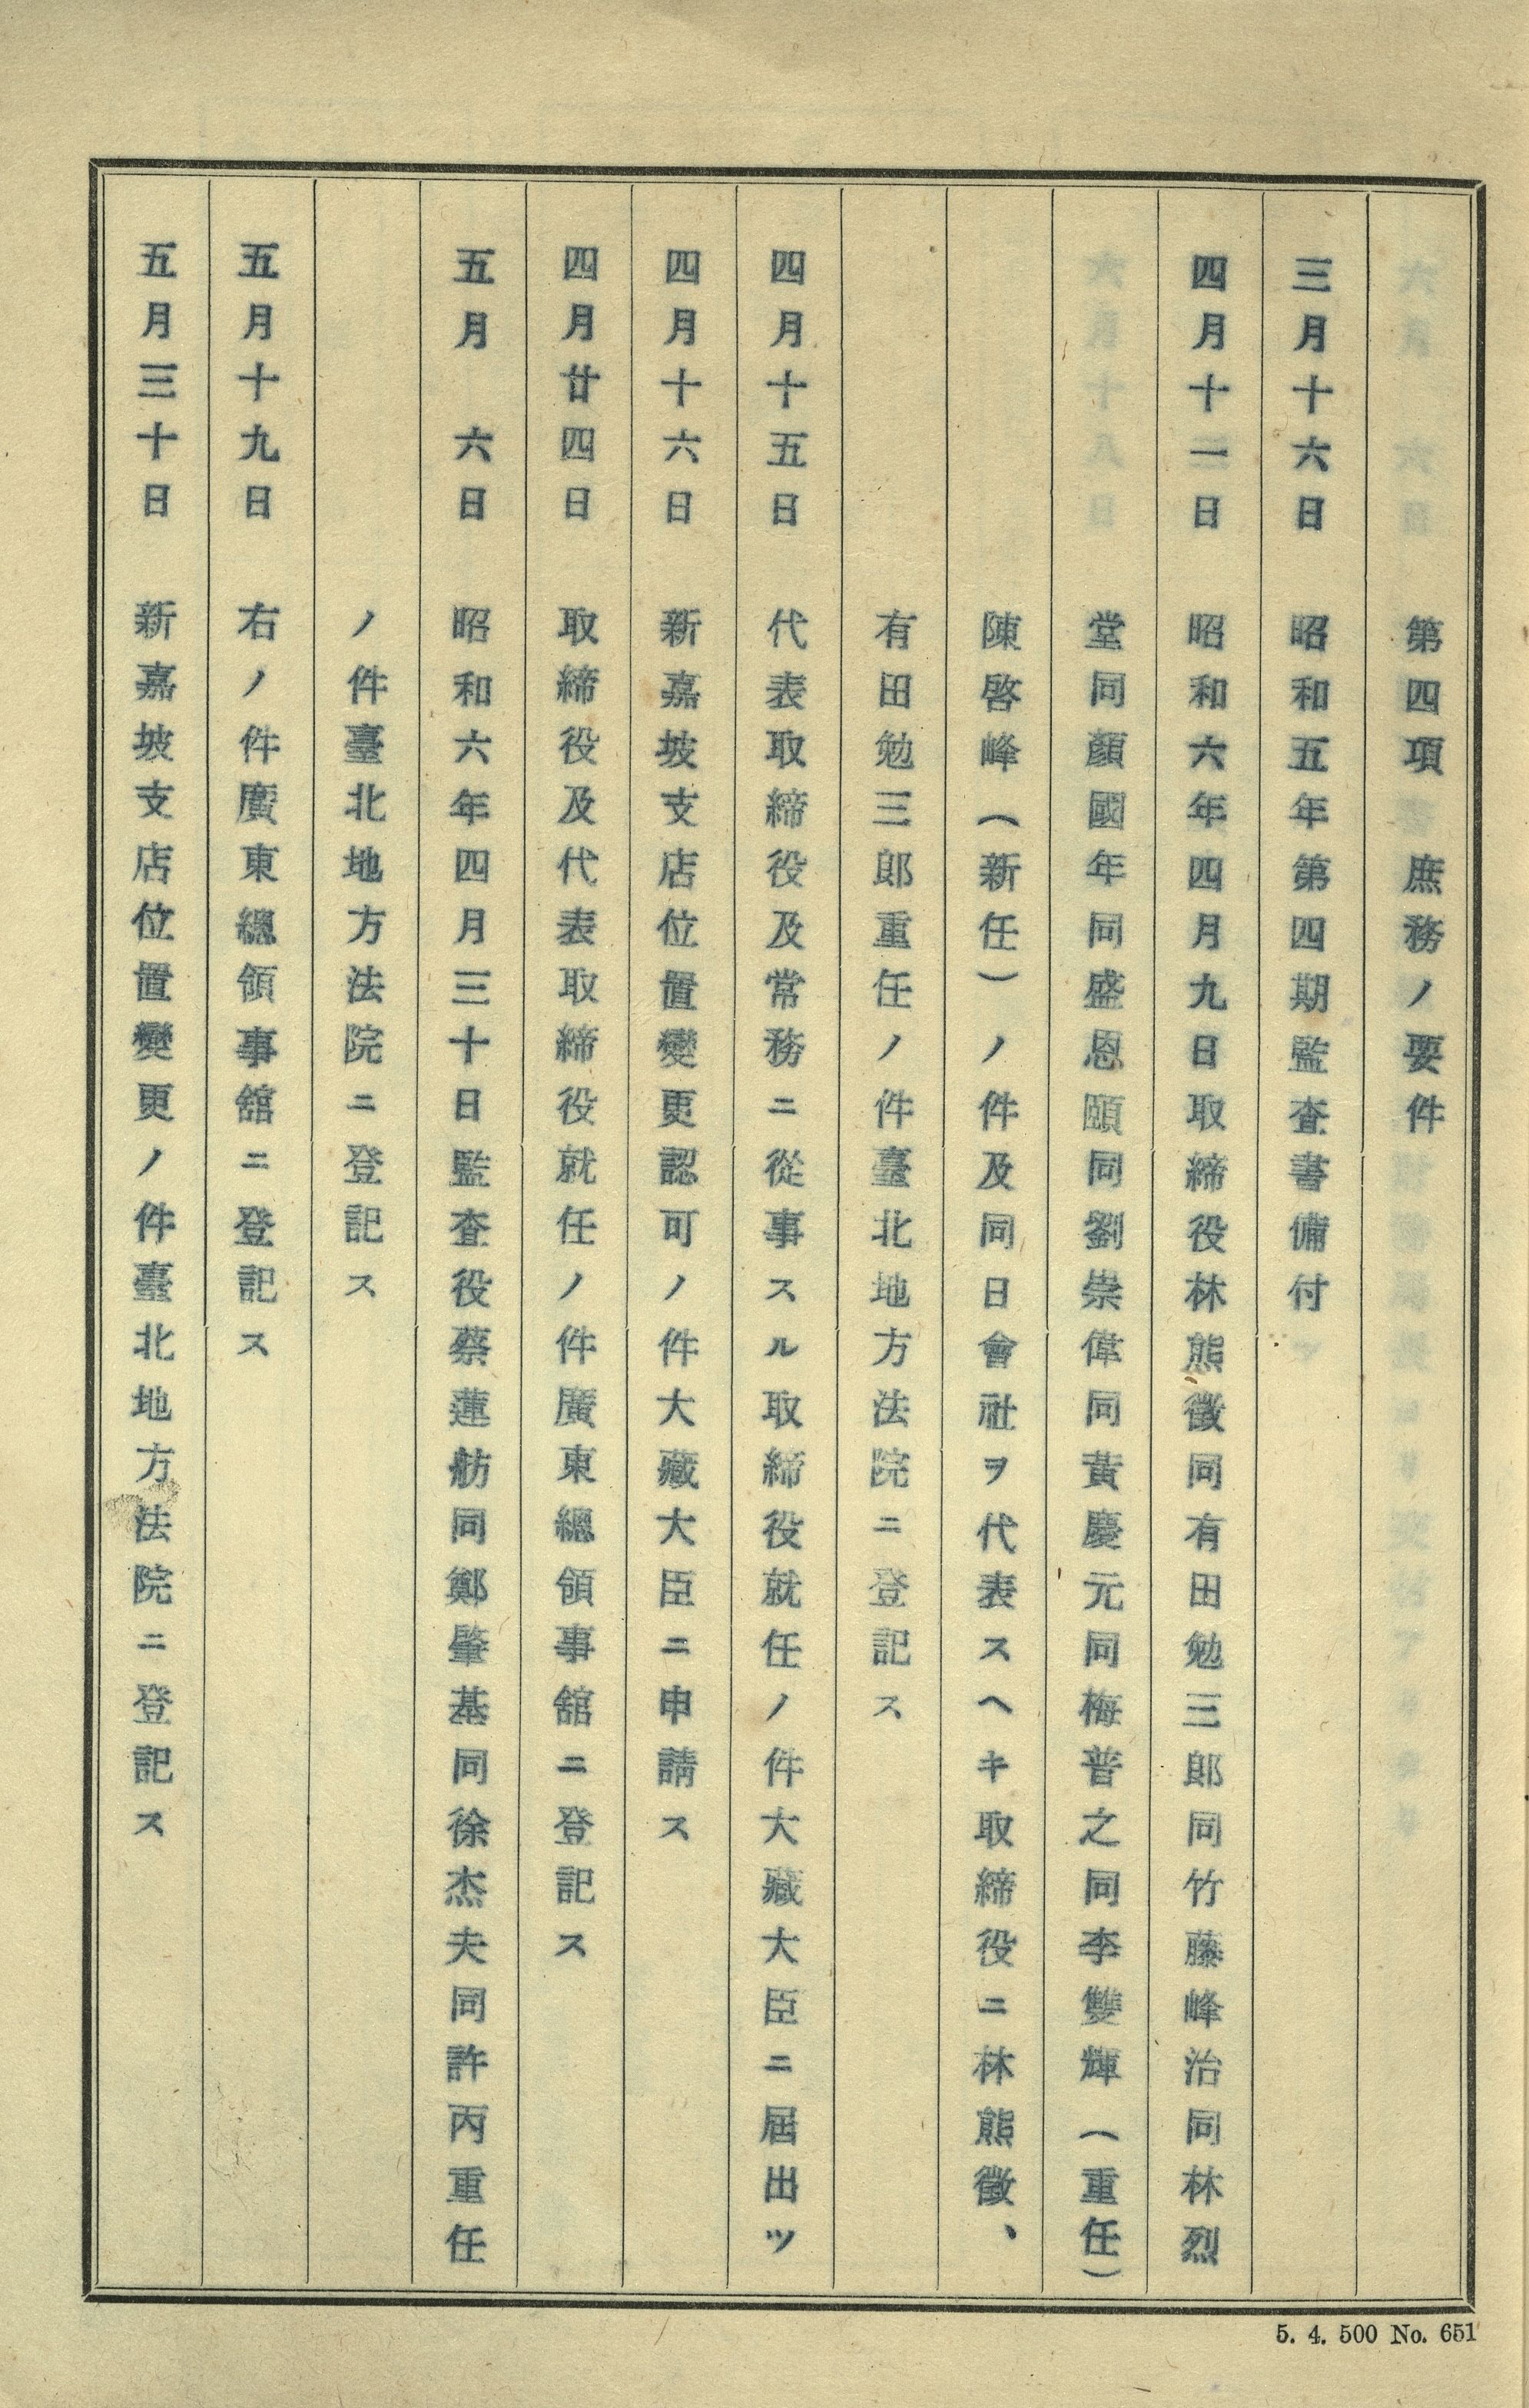 第四項　庶務ノ要件
三月十六日　昭和五年第四期監査書備付
四月十一日　昭和六年四月九日取締役林熊徵同有田勉三郎同竹藤峰治同林烈
堂同顏國年同盛恩頤同劉崇偉同黃慶元同梅普之同李雙輝（重任）
陳啓峰（新任）ノ件及同日會社ヲ代表スヘキ取締役ニ林熊徵、
有田勉三郎重任ノ件臺北地方法院ニ登記ス
四月十五日　代表取締役及常務ニ從事スル取締役就任ノ件大藏大臣ニ屆出ツ
四月十六日　新嘉坡支店位置變更認可ノ件大藏大臣ニ申請ス
四月廿四日　取締役及代表取締役就任ノ件廣東總領事舘ニ登記ス
五月　六日　昭和六年四月三十日監査役蔡蓮舫同鄭肇基同徐杰夫同許丙重任
ノ件臺北地方法院ニ登記ス
五月十九日　右ノ件廣東總領事舘ニ登記ス
五月三十日　新嘉坡支店位置變更ノ件臺北地方法院ニ登記ス
5. 4. 500 No. 651